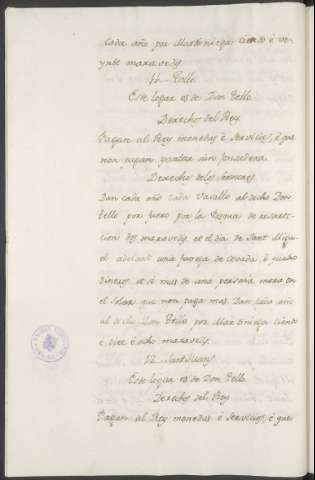 Cada año por Martiniega ciento è ve-
ynte maravedis
11 Tello
Este logar es de Don Tello
Derechos del Rey
Pagan al Rey monedas è servicios, è que
non pagan yantar nin fonsadera.
Derechos de los Sennores
Dan cada año cada Vasallo al dicho Don
Tello por fuero por la Pasqua de resurec-
cion dos maravedis, et el dia de Sant Migu-
el adelant una faneja de cevada, è quatro
dineros, et si mas de una persona mora en
el solar que non paga mas. Dan cada año
al dicho Don Tello por Martiniega ciento
è siete è ocho maravedis.
12 Sant Juan
Este logar es de Don Tello
Derechos del Rey
Pagan al Rey monedas è servicios, è que